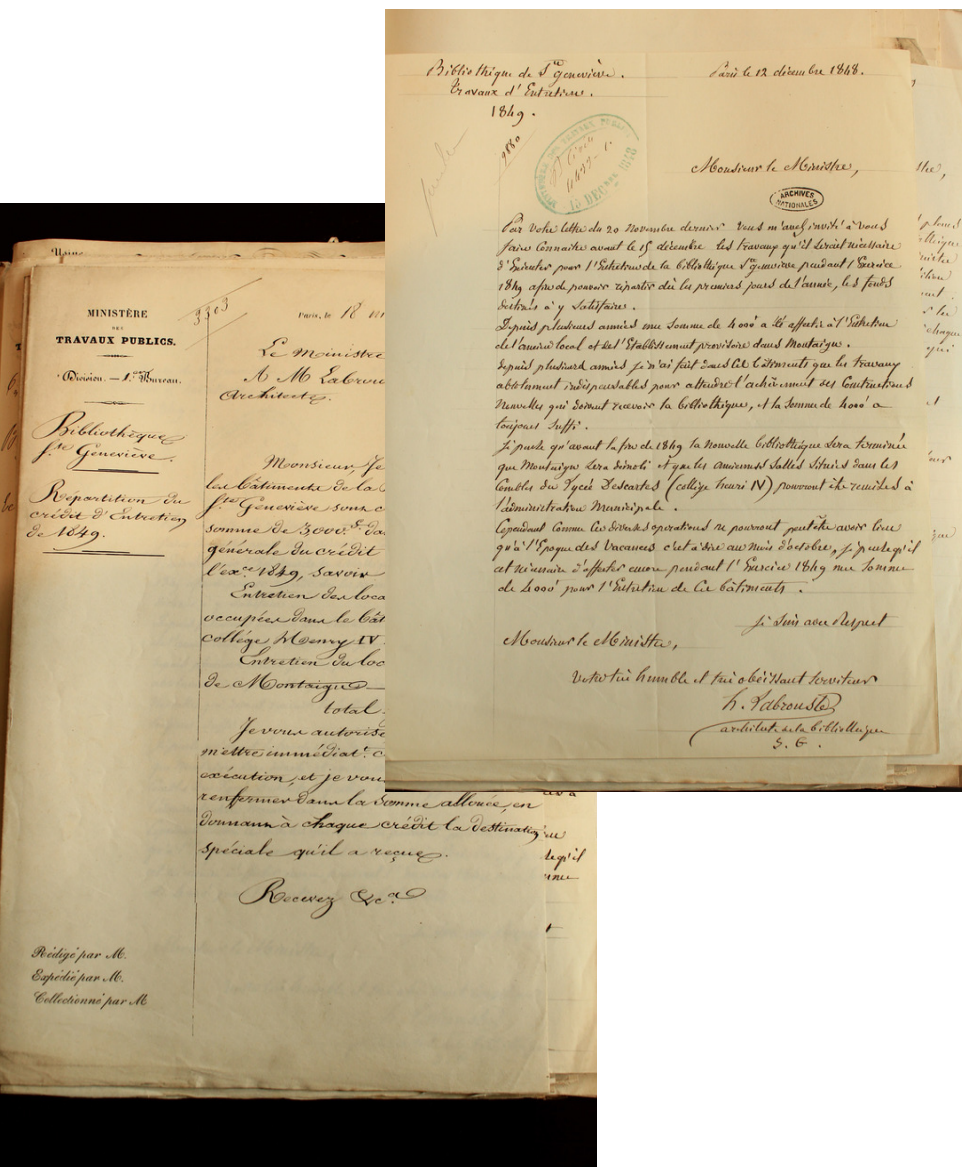 Bibliothèque de Ste geneviève.
Travaux d'Entretien.
1849.
Paris le 12 décembre 1848.
9880
MINISTÈRE DES TRAVAUX PUBLICS
15 DECEM. 1848
Monsieur le Ministre,
ARCHIVES
NATIONALES
Par votre lettre du 20 Novembre dernier vous m'avez invité à vous
faire Connaitre avant le 15 décembre les travaux qu'il serait nécessaire
d'Exécuter pour l'Entretien de la bibliothèque Ste geneviève pendant l'Exercice
1849 afin de pouvoir répartir dès les premiers jours de l'année, les fonds
destinés à y Satisfaire.
Depuis plusieurs années une somme de 4000f a été affectée à l'Entretien
de l'ancien local et de l'Etablissement provisoire dans Montaigu.
depuis plusieurs années je n'ai fait dans ces bâtiments que les travaux
absolument indispensables pour attendre l'achèvement des Constructions
Nouvelles qui doivent recevoir la bibliothèque, et la somme de 4000f a
toujours suffi.
Je pense qu'avant la fin de 1849 la Nouvelle bibliothèque sera terminée
que Montaigu sera démoli et que les anciennes Salles situées dans les
Combles du Lycée Descartes (collège henri IV) pourront être remises à
l'administration Municipale.
Cependant Comme ces diverses opérations ne pourront peut être avoir lieu
qu'à l'Epoque des Vacances c'est à dire au mois d'octobre, je pense qu'il
est nécessaire d'affecter encore pendant l'Exercice 1849 une Somme
de 4000f pour l'Entretien de ces bâtiments.
Je suis avec Respect
Monsieur le Ministre,
Votre très humble et très obéissant serviteur
h. Labrouste
architecte de la bibliothèque
S. G.
MINISTÈRE
DES
TRAVAUX PUBLICS.
Division. — 1er Bureau.
Bibliothèque
Ste Geneviève.
Répartition du
crédit d'Entretien
de 1849.
3303
Paris, le 18
Le Ministre
A M Labrou
Architecte.
Monsieur, Je
les bâtiments de la
Ste Geneviève sous c
somme de 3,000f. da
générale du crédit
l'exce 1849, savoir
Entretien des loca
occupées dans le bât
collége Henry IV
Entretien du loc
de Montaigu
total.
Je vous autorise
m'ettre immédiatt. c
exécution, et je vou
renfermer dans la somme allouée, en
donnant à chaque crédit la destination
spéciale qu'il a reçue.
Recevez &ca
Rédigé par M.
Expédié par M.
Collectionné par M